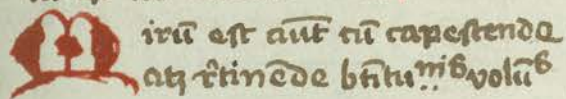 Mirū est aut̄ cū capescende
atꝫ r̄tinēde bt̄itu..nis volūꝰ